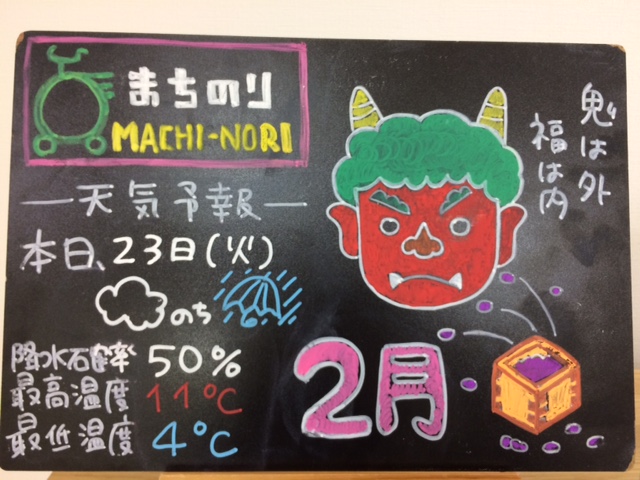 まちのり
MACHI-NORI
天気予報
本日、23日(火)
のち
降水確率 50%
最高温度 11℃
最低温度 4℃
鬼は外
福は内
2月